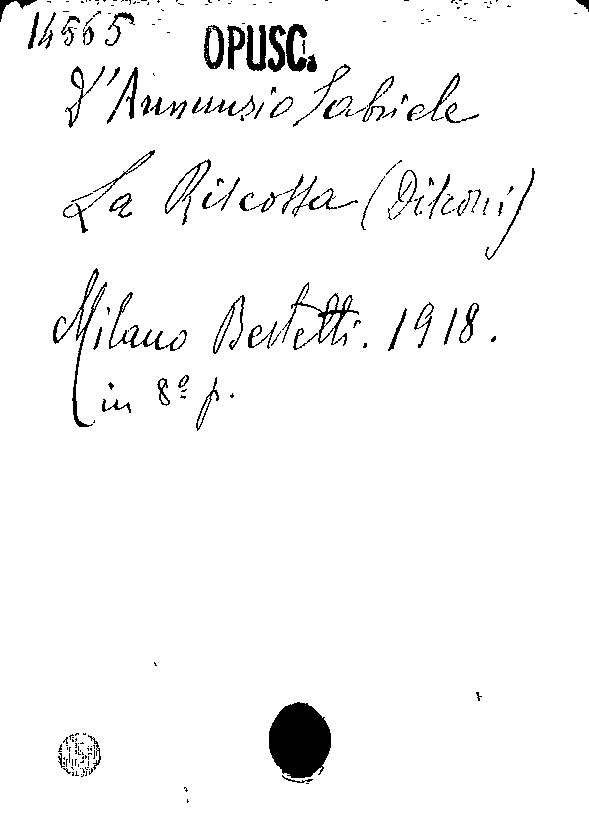 14565
OPUSC.
D'Annunzio Gabriele
La Riscossa (Discorsi)
Milano Bestetti. 1918.
in 8º p.